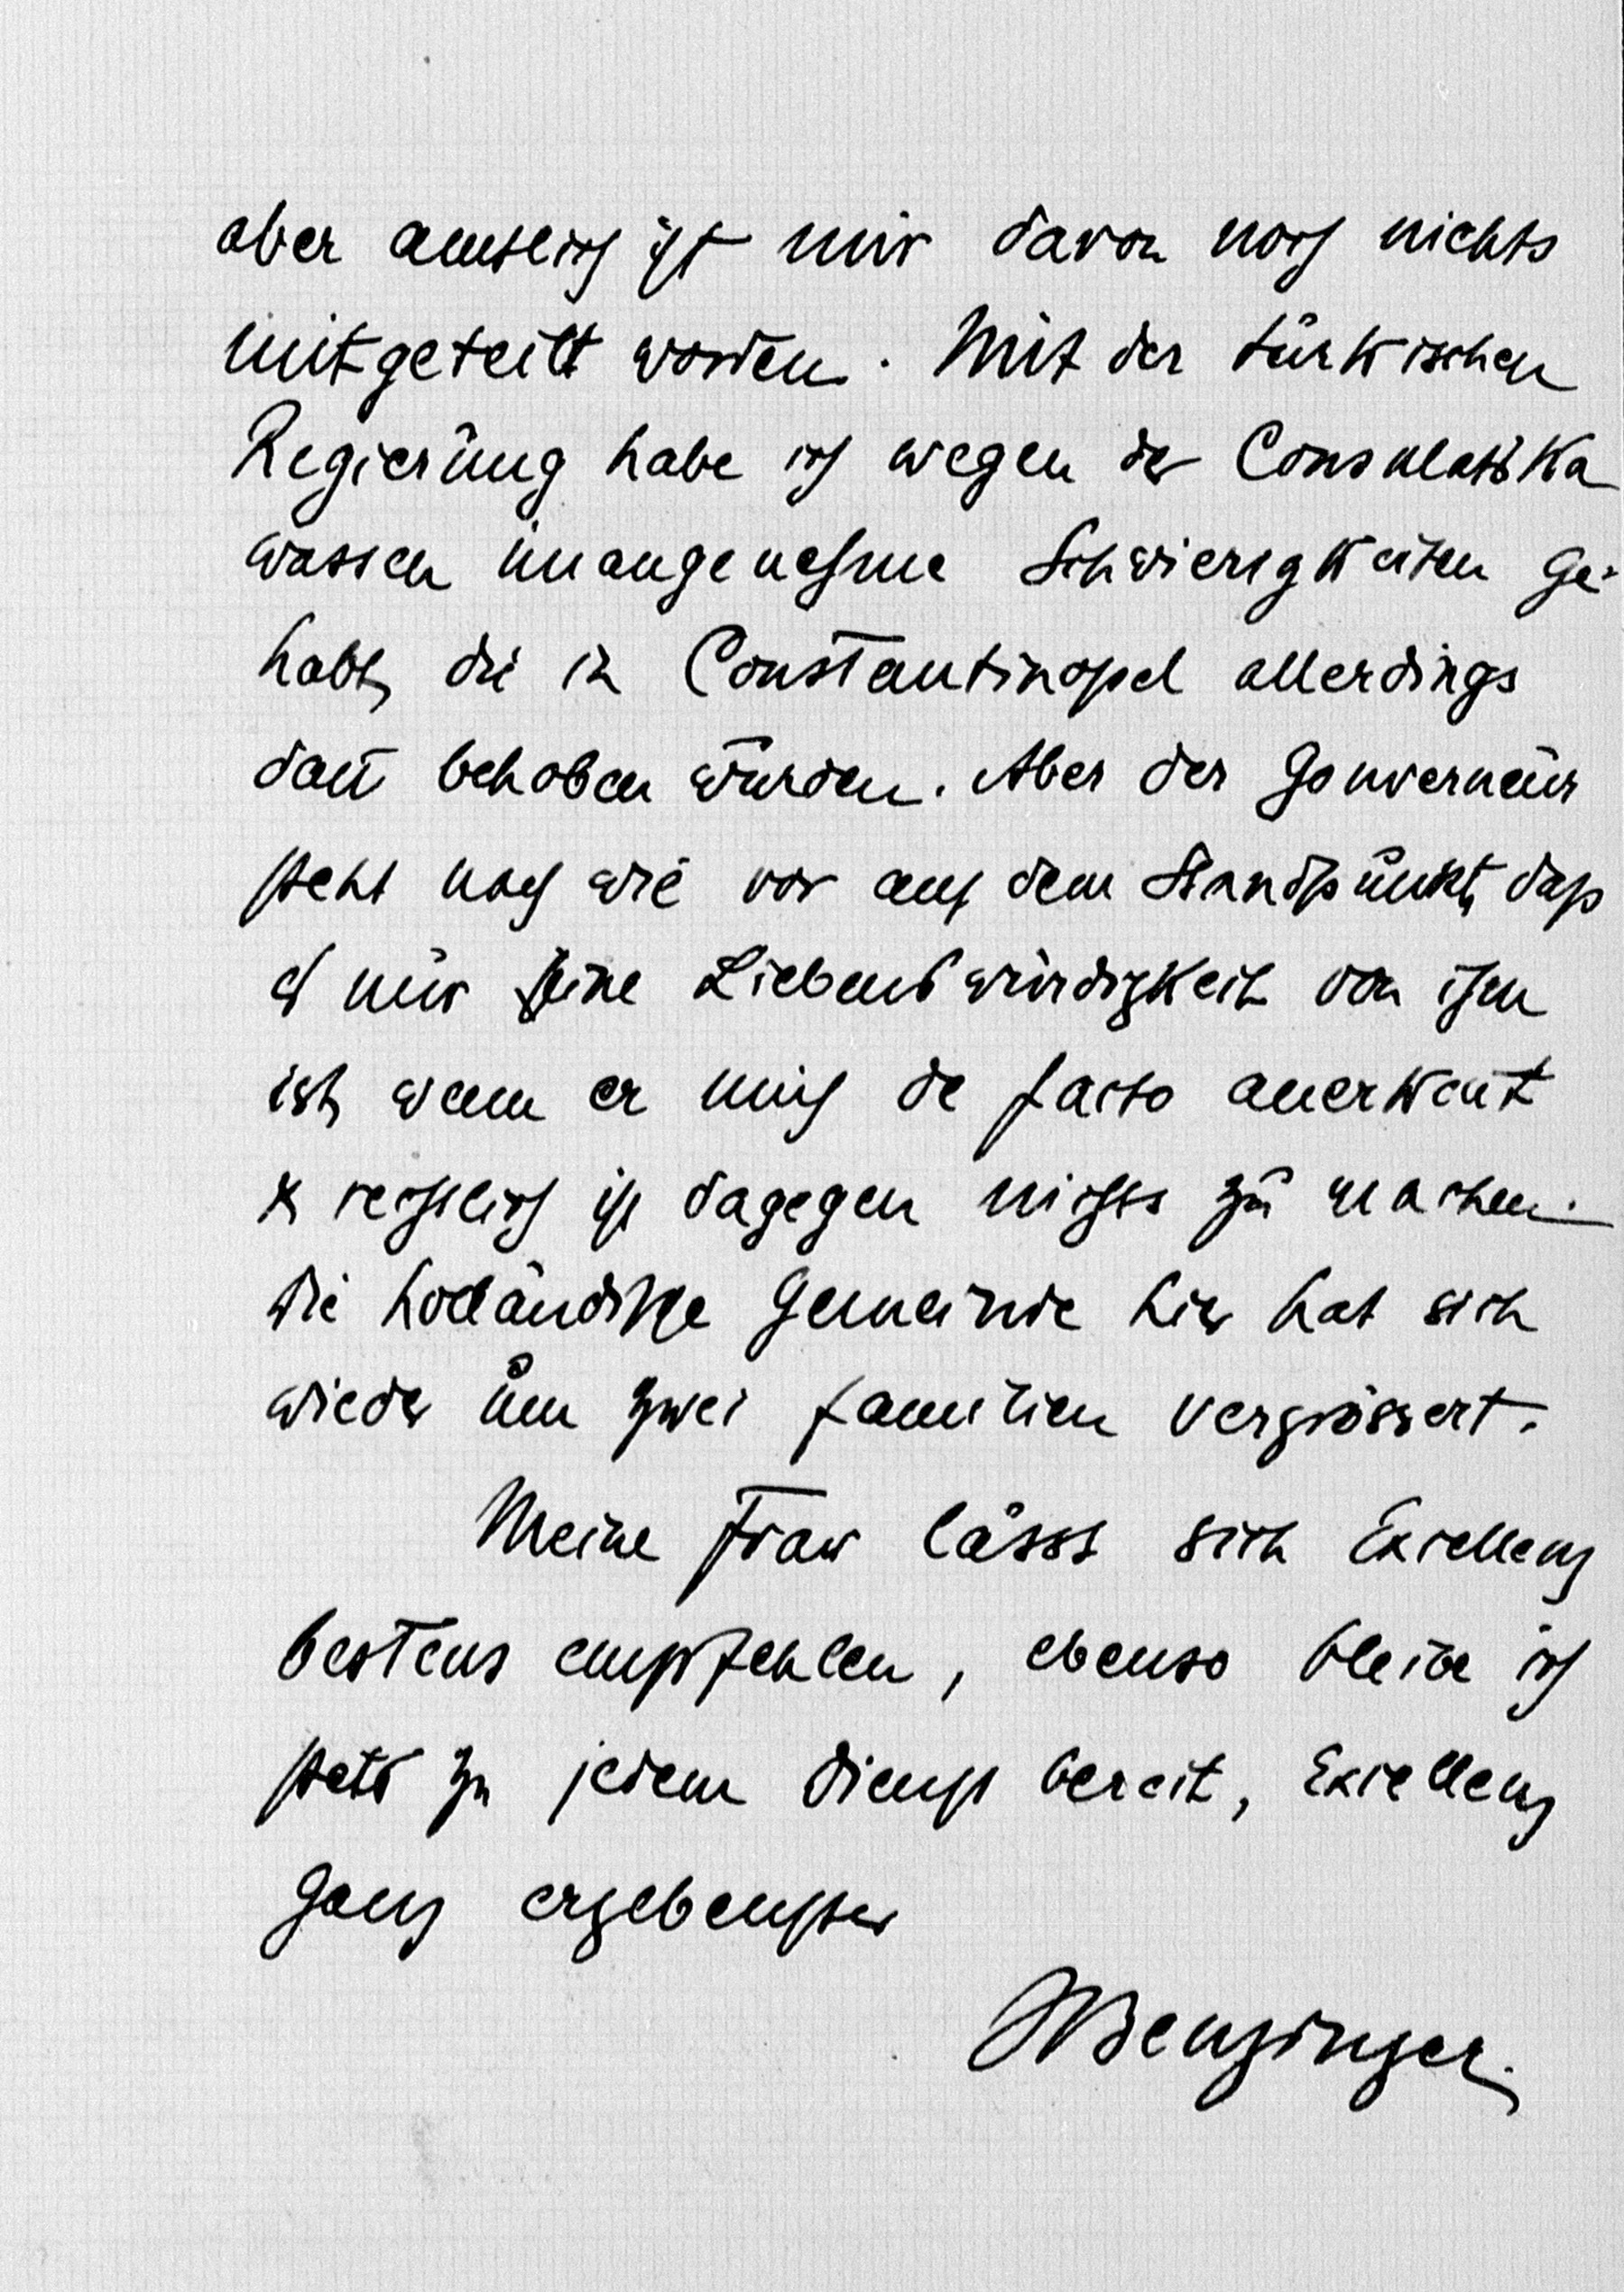 aber amtlich ist mir davon noch nichts
mitgeteilt worden. Mit der türkischen
Regierung habe ich wegen der Consulatska
wassen unangenehme Schwierigkeiten ge-
habt, die in Constantinopel allerdings
dan̄ behoben wurden. Aber der Gouverneur
steht nach wie vor auf dem Standpunkt, daß
es nur eine Liebenswürdigkeit von ihm
ist, wenn er mich de facto anerken̄t
& rechtlich ist dagegen nichts zu machen.
Die holländische Gemeinde hier hat sich
wieder um zwei Familien vergrössert.
Meine Frau lässt sich Excellenz
bestens empfehlen, ebenso bleibe ich
stets zu jedem Dienst bereit, Excellenz
ganz ergebenster
Benzinger.